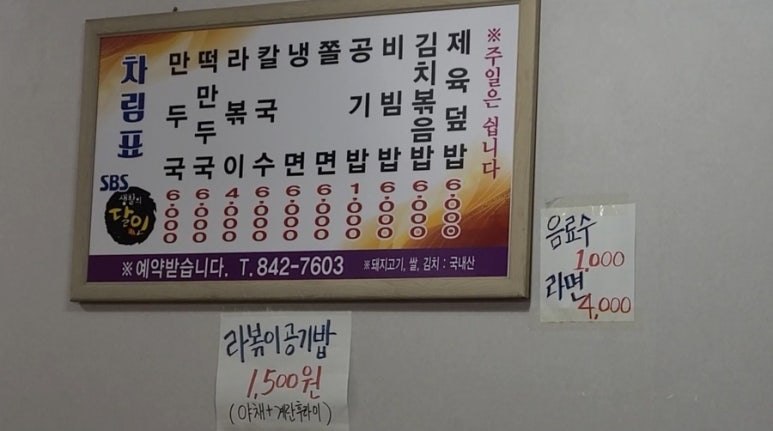 차림표
SBS
생활의
달인
만두국 6,000
떡만두국 6,000
라볶이 4,000
칼국수 6,000
냉면 6,000
쫄면 6,000
공기밥 1,000
비빔밥 6,000
김치볶음밥 6,000
제육덮밥 6,000
※주일은 쉽니다
※예약받습니다. T.842-7603 ※돼지고기, 쌀, 김치 : 국내산
음료수
1,000
라면
4,000
라볶이공기밥
1,500원
(야채+계란후라이)